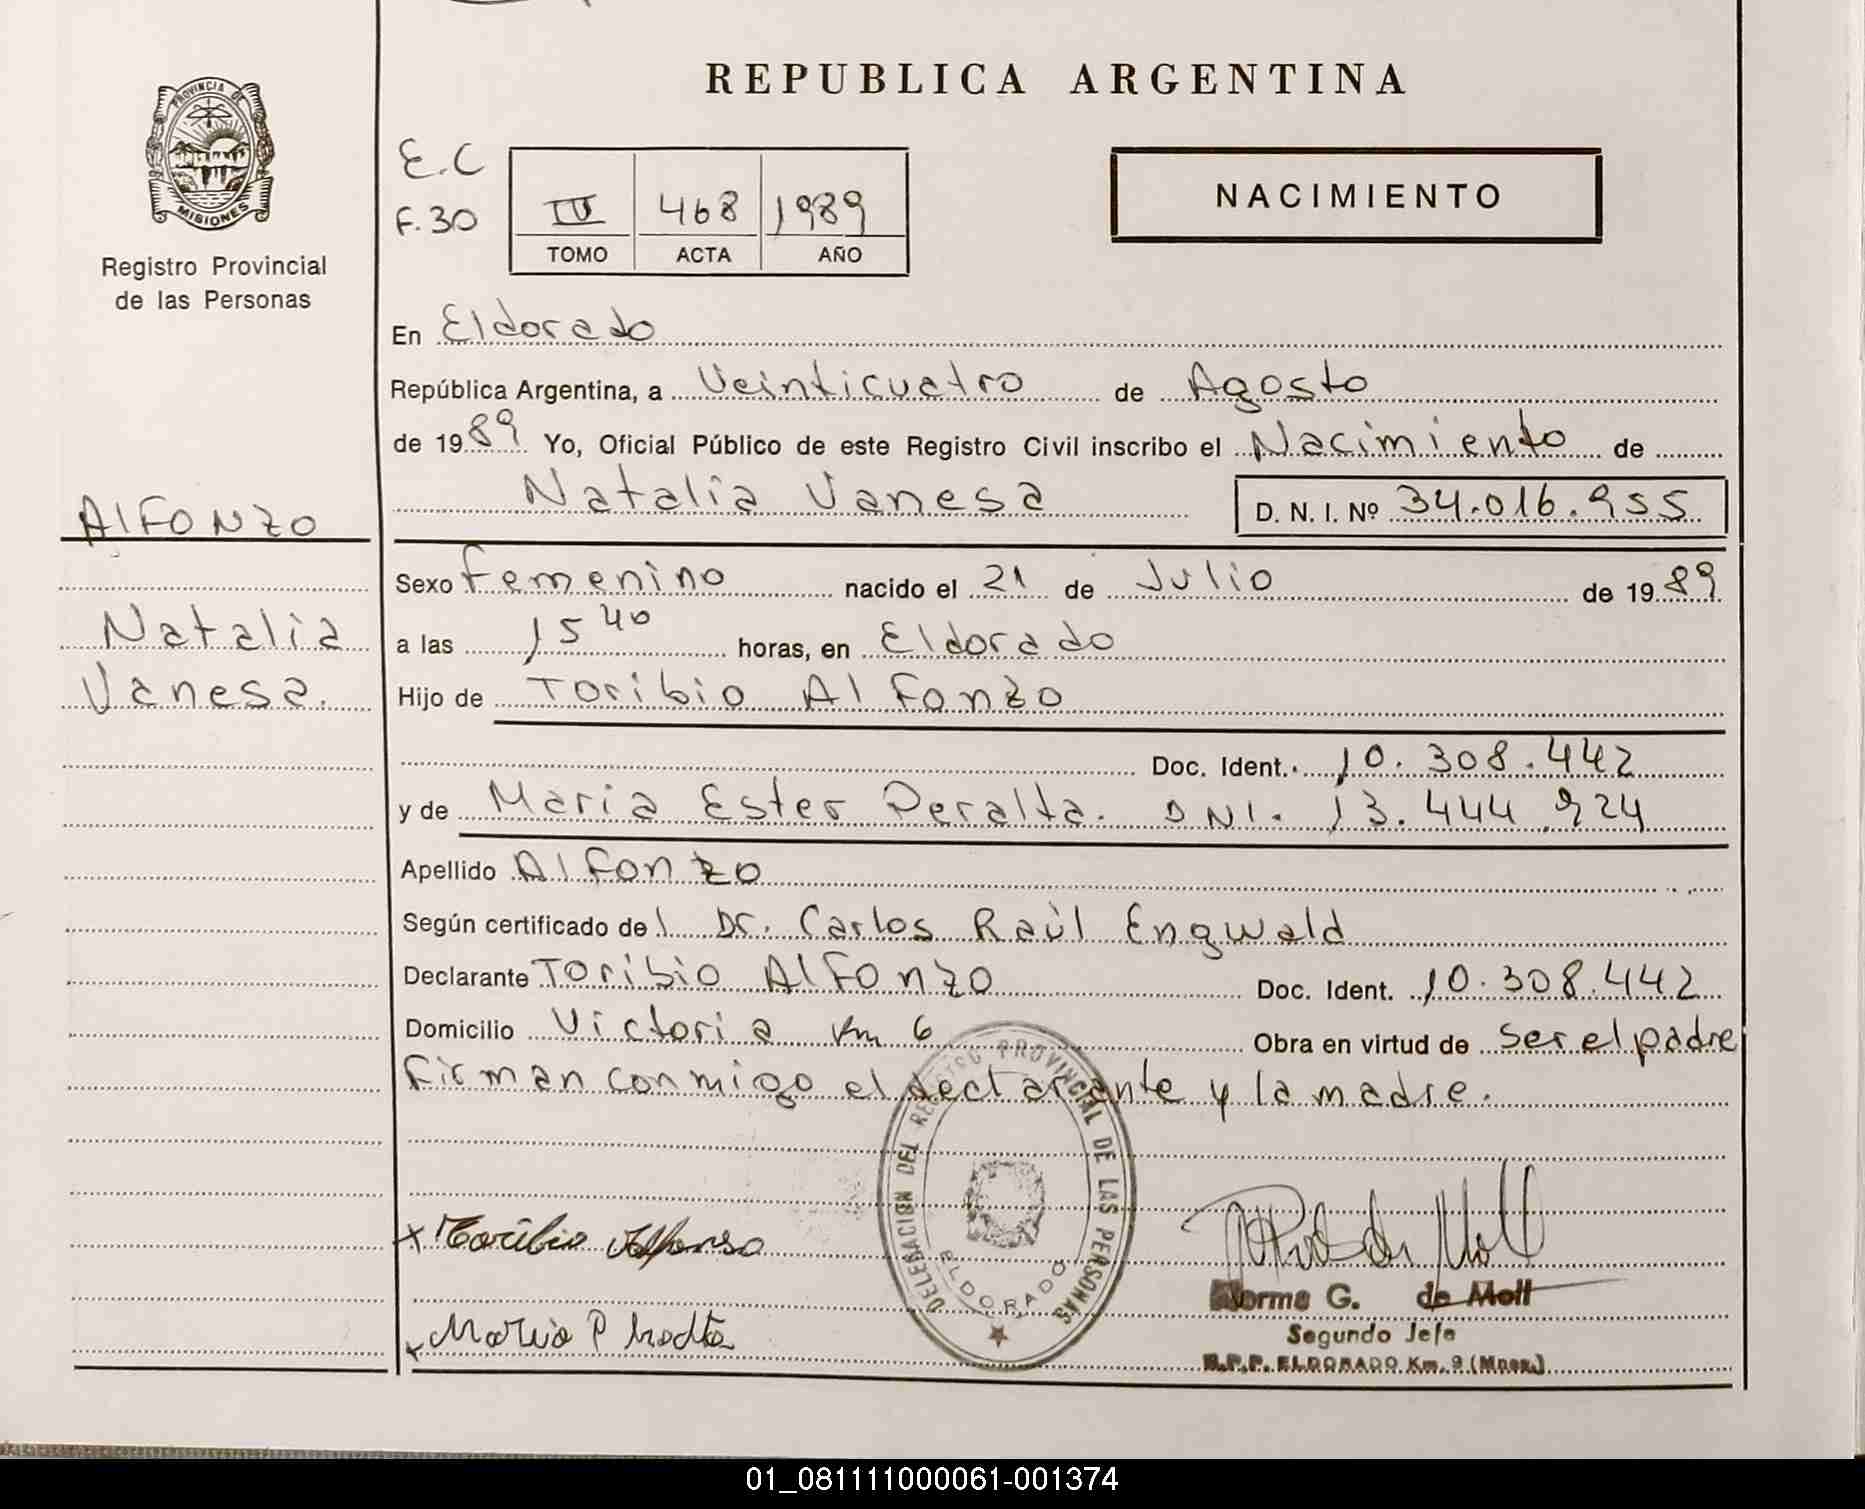 REPUBLICA ARGENTINA
PROVINCIA DE
MISIONES
Registro Provincial
de las Personas
E.C
F.30
IV 468 1989
TOMO ACTA AÑO
NACIMIENTO
En Eldorado
República Argentina, a Veinticuatro de Agosto
de 1989 Yo, Oficial Público de este Registro Civil inscribo el Nacimiento de
Natalia Vanesa D. N. I. Nº 34.016.955
Alfonzo
Natalia
Vanesa.
Sexo femenino nacido el 21 de Julio de 1989
a las 15 40 horas, en Eldorado
Hijo de Toribio Alfonzo
Doc. Ident. 10.308.442
y de Maria Ester Peralta. DNI. 13.444.924
Apellido Alfonzo
Según certificado del Dr. Carlos Raúl Engwald
Declarante Toribio Alfonzo Doc. Ident. 10.308.442
Domicilio Victoria Km 6 Obra en virtud de ser el padre
firman conmigo el declarante y la madre.
DELEGACION DEL REGISTRO PROVINCIAL DE LAS PERSONAS
ELDORADO
x Toribio Alfonso
x Maria P
Norma G. de Moll
Segundo Jefe
R.P.P. ELDORADO Km. 9 (Mnes.)
01_081111000061-001374